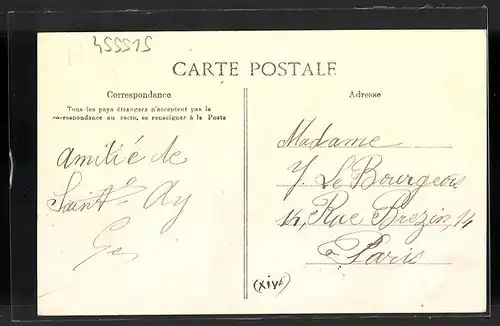 455515
CARTE POSTALE
Correspondance
Tous les pays étrangers n'acceptent pas la
correspondance au recto, se renseigner à la Poste
Amitié de
Saint-Ay
Adresse
Madame
Y. Le Bourgeois
14, Rue Brezin, 14
à Paris
(XIVe)